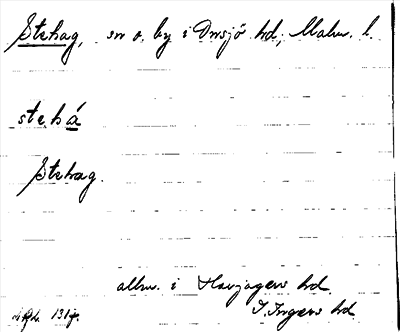 Stehag, sn o. by i Onsjö hd, Malm. l.
stehá
Stehag.
allm. i Harjagers hd.
I. Ingers hd.
1317.